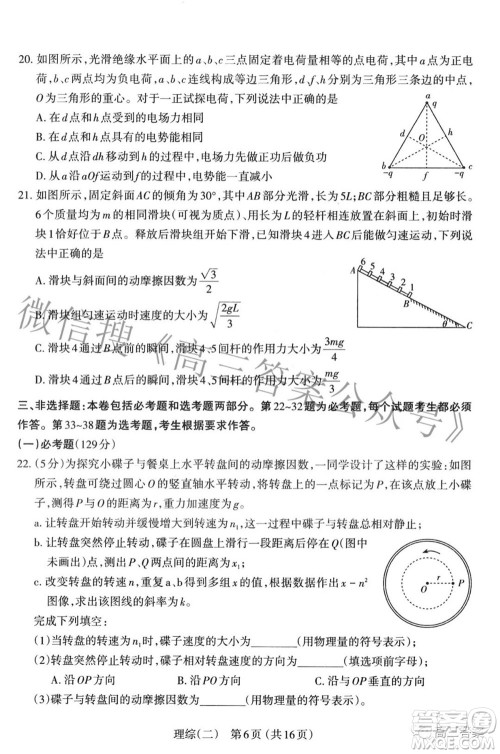 20. 如图所示，光滑绝缘水平面上的a、b、c三点固定着电荷量相等的点电荷，a点为正电
荷，b、c两点均为负电荷，a、b、c连线构成等边三角形，d、f、h分别为三角形三条边的中点，
O为三角形的重心。对于一正试探电荷，下列说法中正确的是
A. 在d点和h点受到的电场力相同
B. 在d点和h点，电势能相同
C. 从d点沿dh移动到h点的过程中，电场力先做正功后做负功
D. 从a点沿aOf运动到f点的过程中，电势能先减小后增大
a
d
h
O
b
c
-q
f
-q
21. 如图所示，固定斜面AC的倾角为30°，其中AB部分光滑，长为5L；BC部分粗糙且足够长。
6个质量均为m的相同滑块(可视为质点)，用长均为L的轻杆相连并放置在斜面上，滑
块1恰好位于B点。释放后滑块组开始下滑，当滑块1~4在BC部分时恰能做匀速运动，下列
说法中正确的是
A. 滑块与斜面间的动摩擦因数为√3/2
B. 滑块组匀速运动时的速度大小为√(2gL/3)
C. 滑块4通过B点前的瞬间，滑块4、5间杆的作用力大小为3mg/4
D. 滑块4通过B点后的瞬间，滑块4、5间杆的作用力大小为mg/3
6 5 4 3 2 1
A
B
θ
C
三、非选择题：本卷包括必考题和选考题两部分。第22~32题为必考题，每个试题考生都必须
作答。第33~38题为选考题，考生根据要求作答。
(一)必考题(129分)
22. (5分)为探究小碟子与餐桌上水平转盘间的动摩擦因数，一同学设计了这样的实验：如图
所示，转盘可绕过圆心O的竖直轴水平转动，将碟子放置在转盘边缘内的某点P处，
测得P与O的距离为r，重力加速度为g。
a. 让转盘开始转动并缓慢增大到转速为n₁，这一过程中碟子与转盘总相对静止；
b. 让转盘突然停止转动，碟子在圆盘上滑行一段距离后停在Q点(图中
未画出)，测出P、Q两点间的距离为x；
c. 改变转盘的转速，重复a、b得到多组n、x的值，作出x—n²
图线，并求出该图线的斜率为k。
O
r
P
完成下列填空：
(1)当转盘的转速为n₁时，碟子速度的大小为________(用物理量的符号表示)；
(2)转盘突然停止转动，碟子在转盘上滑动的方向是________；
A. 沿OP方向
B. 沿PO方向
C. 垂直OP方向
(3)碟子与转盘间的动摩擦因数为________(用物理量的符号表示)。
理综(二) 第6页(共16页)
微信搜《高三答案公众号》